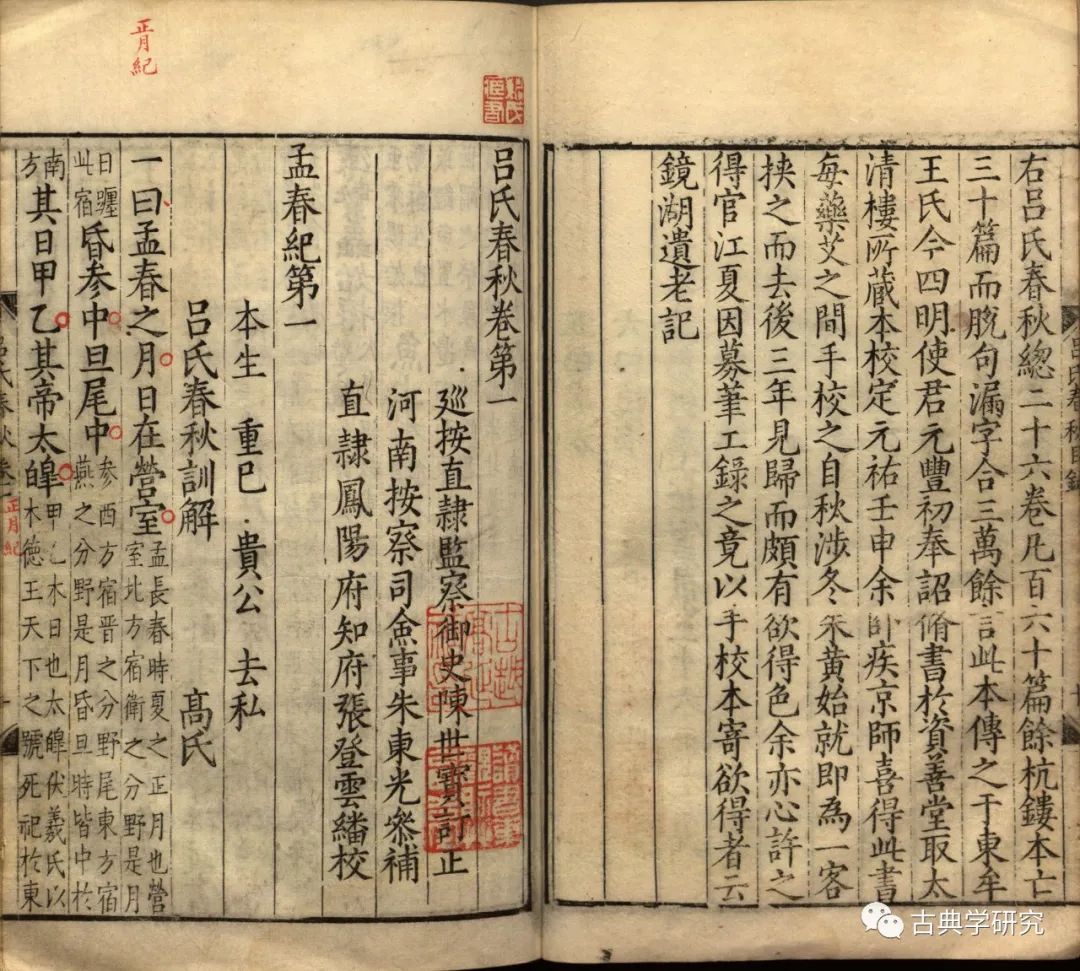 右吕氏春秋總二十六卷凡百六十篇餘杭鏤本亡
三十篇而脫句漏字合三萬餘言此本傳之于東牟
王氏今四明使君元豐初奉詔脩書於資善堂取太
清樓所藏本校定元祐壬申余卧疾京師喜得此書
每藥艾之間手校之自秋涉冬朱黃始就即為一客
挾之而去後三年見歸而頗有欲得色余亦心許之
得官江夏因募筆工錄之竟以手校本寄欲得者云
鏡湖遺老記
吕氏春秋卷第一
廵按直隷監察御史陳世寶訂正
河南按察司僉事朱東光叅補
直隷鳳陽府知府張登雲繙校
孟春紀第一
本生 重己 貴公 去私
吕氏春秋訓解 高氏
一曰孟春之月日在營室孟長春時夏之正月也營
室北方宿衛之分野是月
日躔
此宿昏参中旦尾中参西方宿晋之分野尾東方宿
燕之分野是月昏旦時皆中於
南
方其日甲乙其帝太皥甲乙木日也太皥伏羲氏以
木德王天下之號死祀於東
正月紀
正月紀
古典学研究